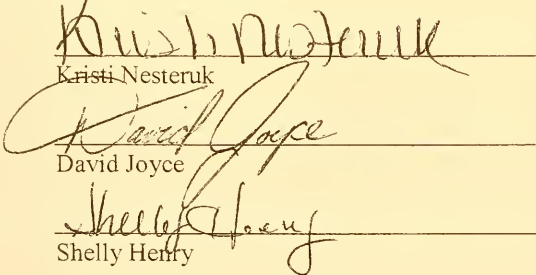 Kristi Nesteruk
Kristi Nesteruk
David Joyce
David Joyce
Shelly Henry
Shelly Henry